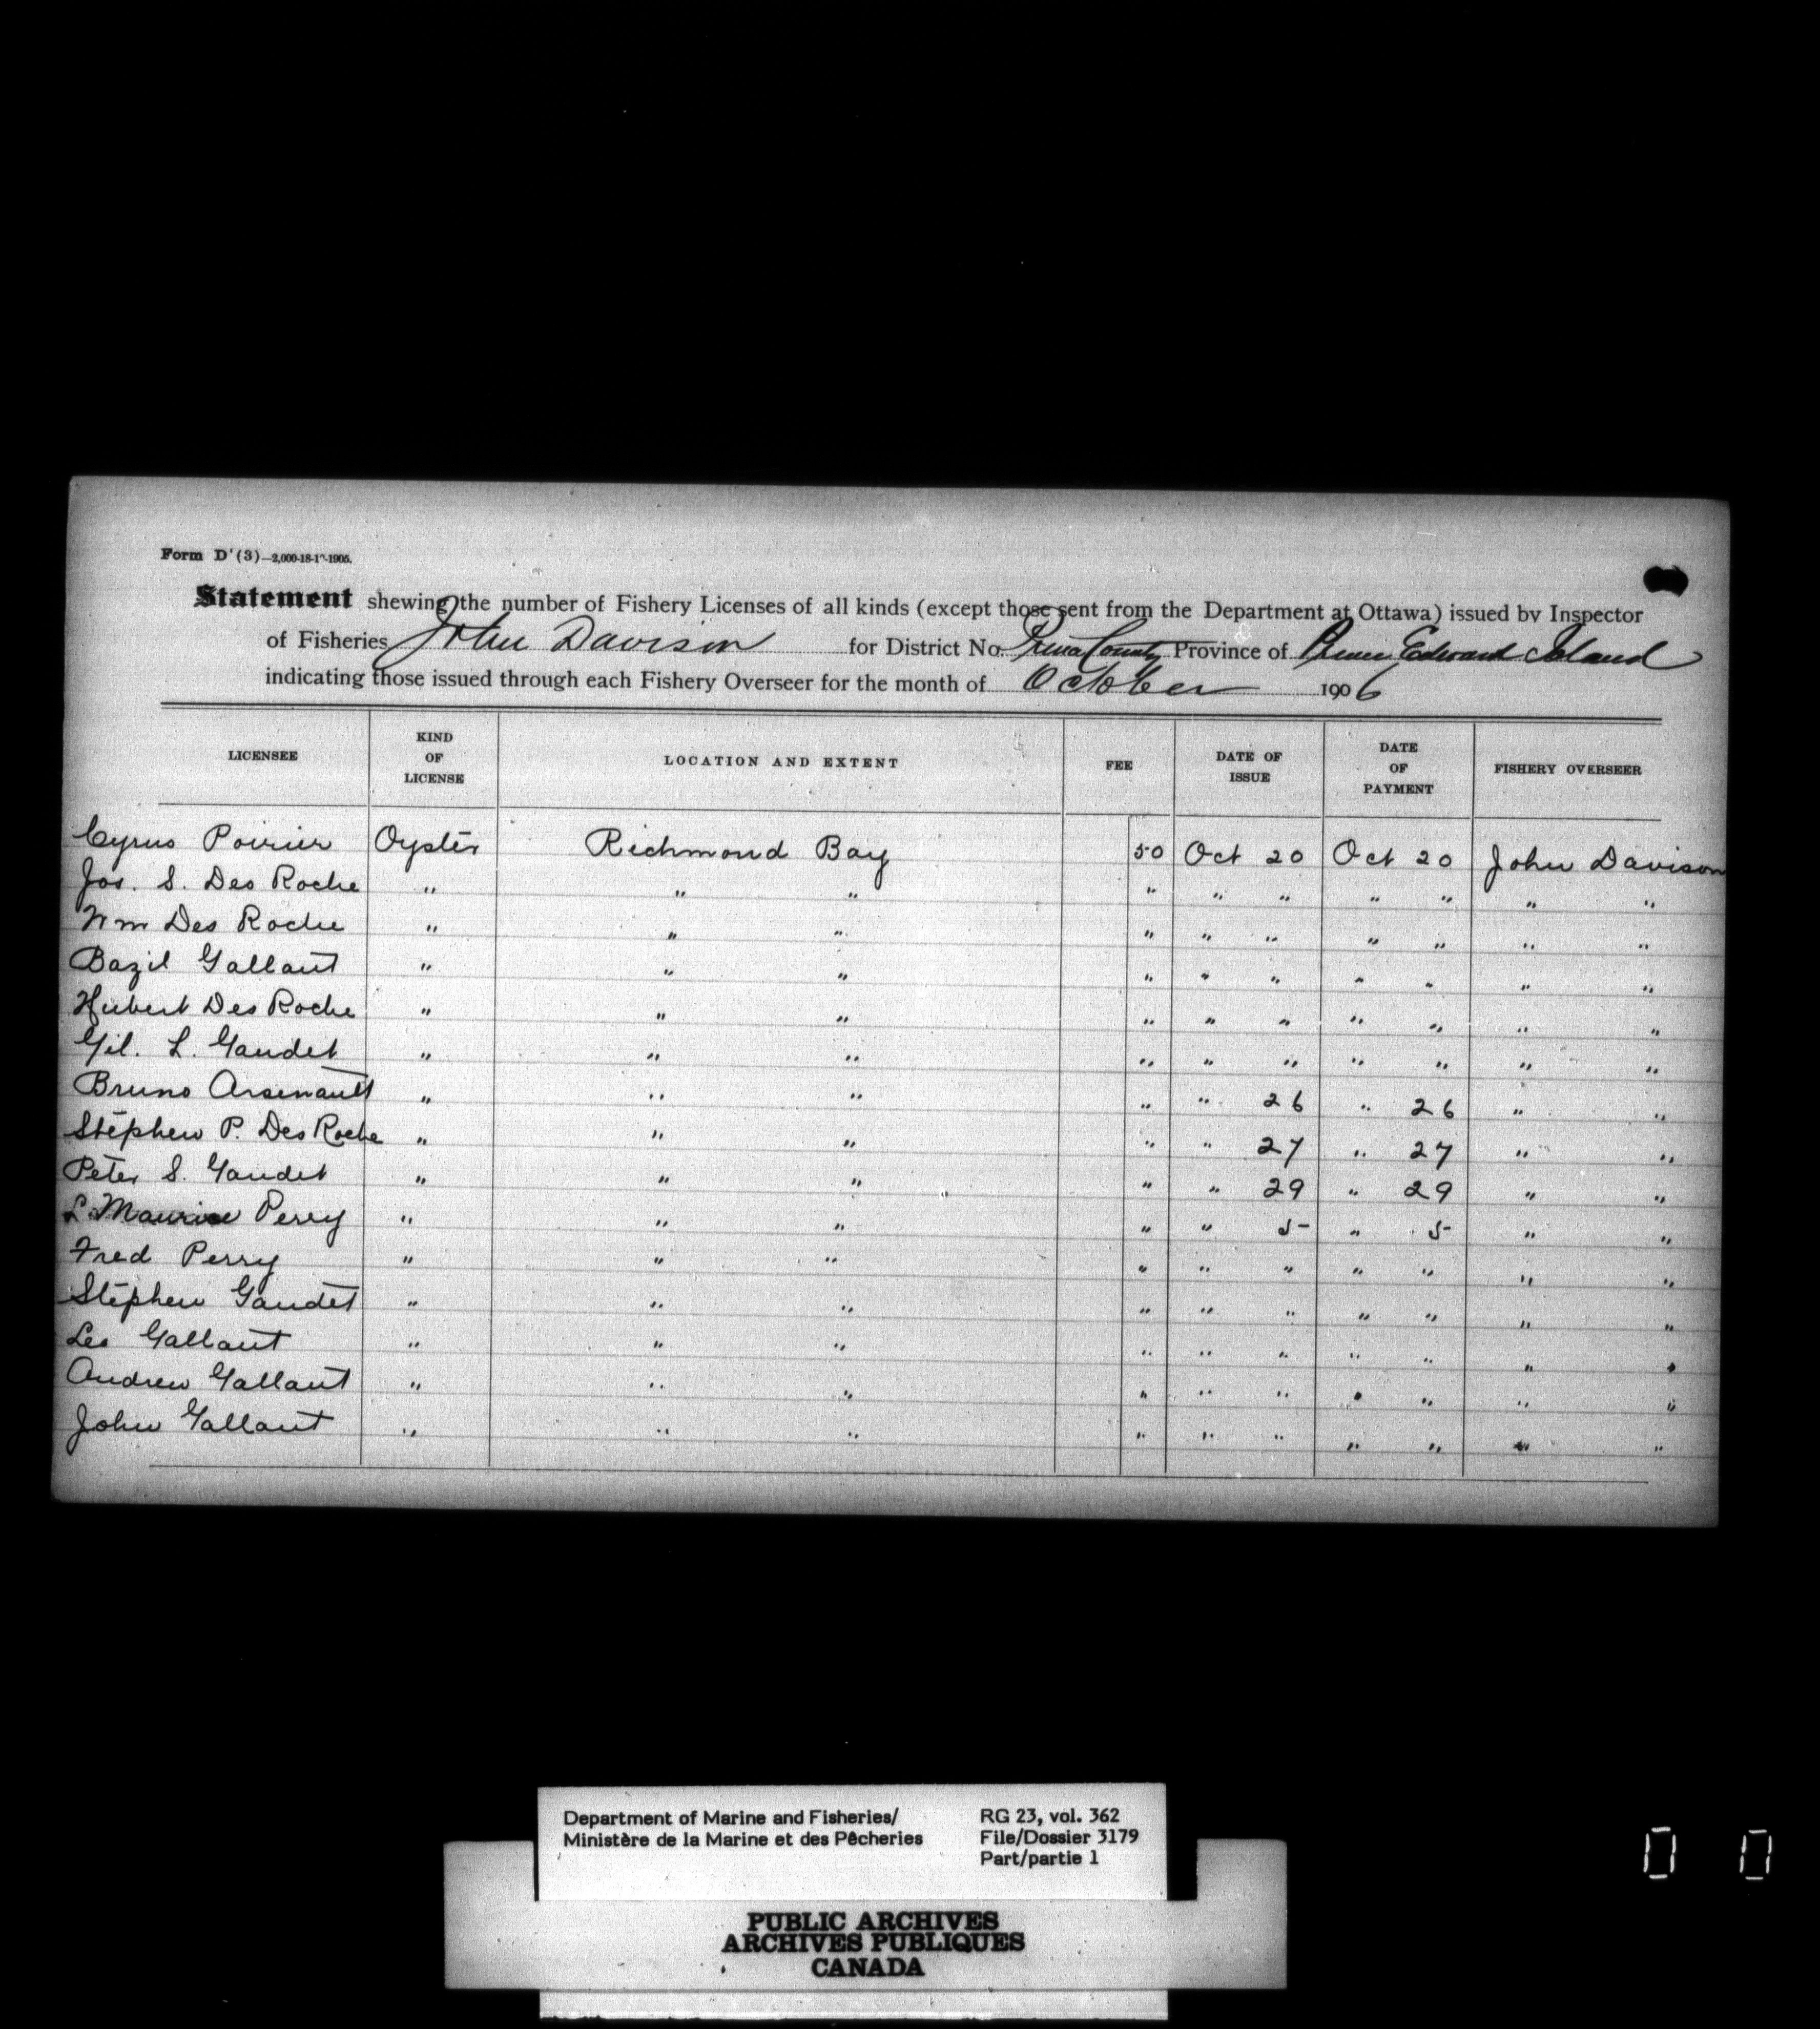 Form D'(3)—2,000-18-1 -1905.
Statement shewing the number of Fishery Licenses of all kinds (except those sent from the Department at Ottawa) issued by Inspector
of Fisheries John Davison for District No. Prince County Province of Prince Edward Island
indicating those issued through each Fishery Overseer for the month of October 1906
LICENSEE KIND OF LICENSE LOCATION AND EXTENT FEE DATE OF ISSUE DATE OF PAYMENT FISHERY OVERSEER
Cyrus Poirier Oyster Richmond Bay 50 Oct 20 Oct 20 John Davison
Jos. S. Des Roche " " " " " " " " " "
Wm Des Roche " " " " " " " " " "
Bazil Gallant " " " " " " " " " "
Hubert Des Roche " " " " " " " " " "
Gil. L. Gaudet " " " " " " " " " "
Bruno Arsenault " " " " " 26 " 26 " "
Stephen P. Des Roche " " " " " 27 " 27 " "
Peter S. Gaudet " " " " " 29 " 29 " "
L. Maurice Perry " " " " " 5 " 5 " "
Fred Perry " " " " " " " " " "
Stephen Gaudet " " " " " " " " " "
Leo Gallant " " " " " " " " " "
Andrew Gallant " " " " " " " " " "
John Gallant " " " " " " " " " "
Department of Marine and Fisheries/ RG 23, vol. 362
Ministère de la Marine et des Pêcheries File/Dossier 3179
Part/partie 1
PUBLIC ARCHIVES
ARCHIVES PUBLIQUES
CANADA
0 0